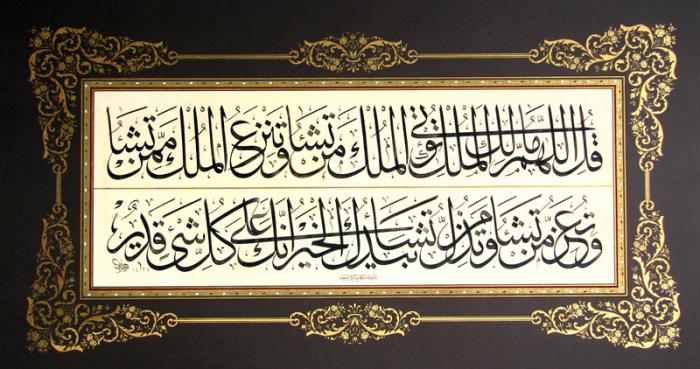 قُلِ اللّٰهُمَّ مَالِكَ الْمُلْكِ تُؤْتِي الْمُلْكَ مَنْ تَشَاءُ وَتَنْزِعُ الْمُلْكَ مِمَّنْ تَشَاءُ
وَتُعِزُّ مَنْ تَشَاءُ وَتُذِلُّ مَنْ تَشَاءُ بِيَدِكَ الْخَيْرُ إِنَّكَ عَلَى كُلِّ شَيْءٍ قَدِيرٌ